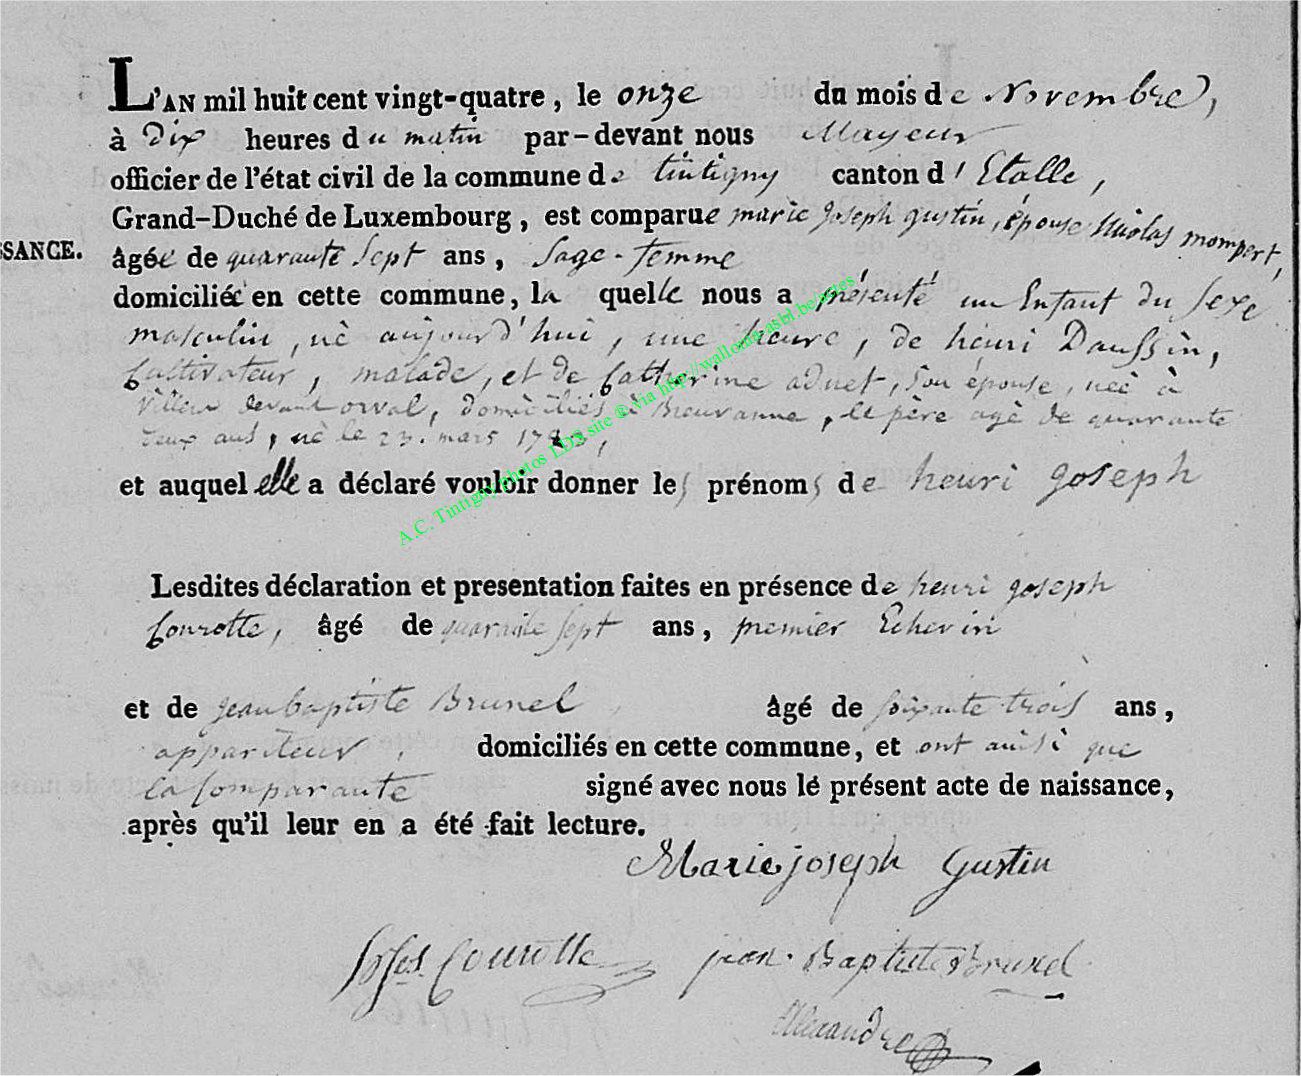 L'AN mil huit cent vingt-quatre, le onze du mois de Novembre,
à Dix heures du matin par-devant nous Mayeur
officier de l'état civil de la commune de tintigny canton d'Etalle,
Grand-Duché de Luxembourg, est comparue marie joseph gustin, épouse Nicolas mompert,
SSANCE. âgée de quarante sept ans, Sage-femme
domiciliée en cette commune, la quelle nous a présenté un Enfant du Sexe
masculin, né aujourd'hui, une heure, de henri Daussin,
Cultivateur, malade, et de Catherine adnet, son épouse, née à
Villers devant orval, domiciliés à Breuvanne, le père agé de quarante
deux ans, né le 23. mars
et auquel elle a déclaré vouloir donner les prénoms de henri joseph
A.C. Tintigny photos LDS site ® via http://wallonia-asbl.be/actes
Lesdites déclaration et presentation faites en présence de henri joseph
Courotte, âgé de quarante sept ans, premier Echevin
et de jean baptiste Brunel âgé de soixante trois ans,
appariteur, domiciliés en cette commune, et ont ainsi que
la Comparante signé avec nous le présent acte de naissance,
après qu'il leur en a été fait lecture.
Marie joseph Gustin
Courotte jean-Baptiste Brunel
Alexandre